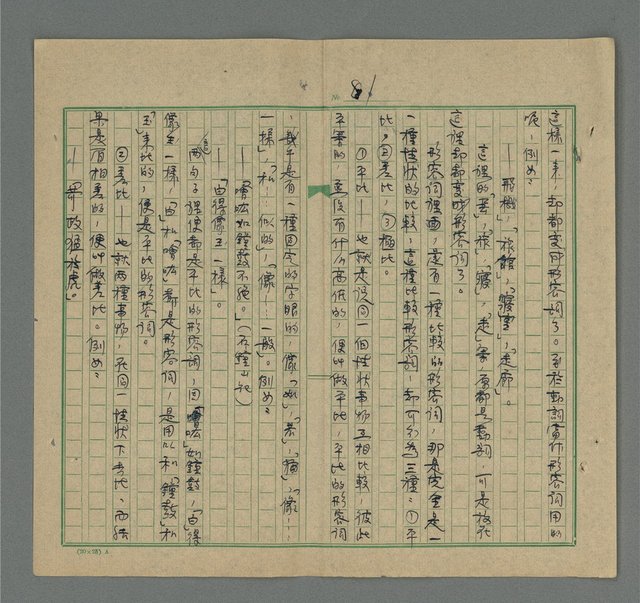 No 81
這樣一來,却都變成形容詞了。至於動詞當作形容詞用的
呢,例如:
──「飛機」,「旅館」,「寢室」,「走廊」。
這裡的「飛」,「旅」,「寢」,「走」等原都是動詞,可是放在
這裡却都變成形容詞了。
形容詞裡面,還有一種比較的形容詞,那是完全是
一種性狀的比較,這種比較形容詞,却可分為三種:①平
比,②差比,③極比。
①平比──也就是說同一個性狀事物互相比較,彼此
平等的,並沒有什么高低的,便叫做平比,平比的形容詞
,幾乎是有一種固定的字眼的,像「如」,「若」,「猶」,「像⋯
一樣」,「和⋯似的」,「像⋯一般」。例如:
──「噌吰如鐘鼓不絕。」(石鐘山記)
──「白得像玉一樣」。
這兩句子裡便都是平比的形容詞,因「噌吰」如鐘鼓,「白得
像玉一樣,「白」和「噌吰」都是形容詞,是用以和「鐘鼓」和
「玉」來比的,便是平比的形容詞。
②差比──也就兩種事物,在同一性狀下去比,而結
果是有相差的,便叫做差比。例如:
──「苛政猛於虎」。
(20×25) A